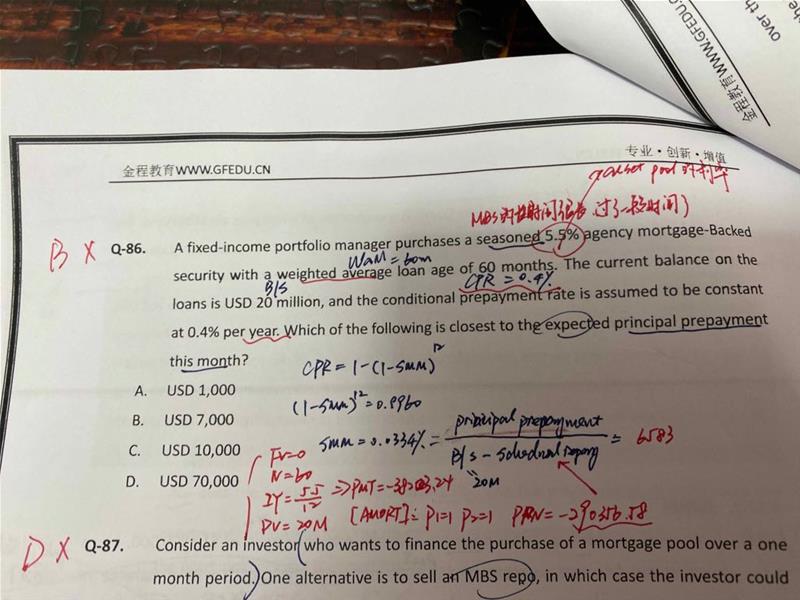 over th
the
金程教育 WWW.GFEDU.C
金程教育WWW.GFEDU.CN
专业·创新·增值
B X
Q-86. A fixed-income portfolio manager purchases a seasoned 5.5% agency mortgage-Backed
security with a weighted average loan age of 60 months. The current balance on the
WAM = 60m
CPR = 0.4%
B/S
loans is USD 20 million, and the conditional prepayment rate is assumed to be constant
at 0.4% per year. Which of the following is closest to the expected principal prepayment
this month?
CPR = 1-(1-SMM)^12
A. USD 1,000
(1-SMM)^12 = 0.9960
B. USD 7,000
SMM = 0.0334% = principal prepayment / B/S - = 6583
C. USD 10,000
20M
D. USD 70,000
FV=0
N=60
IY = 5.5/12
PV = 20M
[AMORT]: P1=1 P2=1 PRN = -290356.58
D X
Q-87. Consider an investor who wants to finance the purchase of a mortgage pool over a one
month period. One alternative is to sell an MBS repo, in which case the investor could